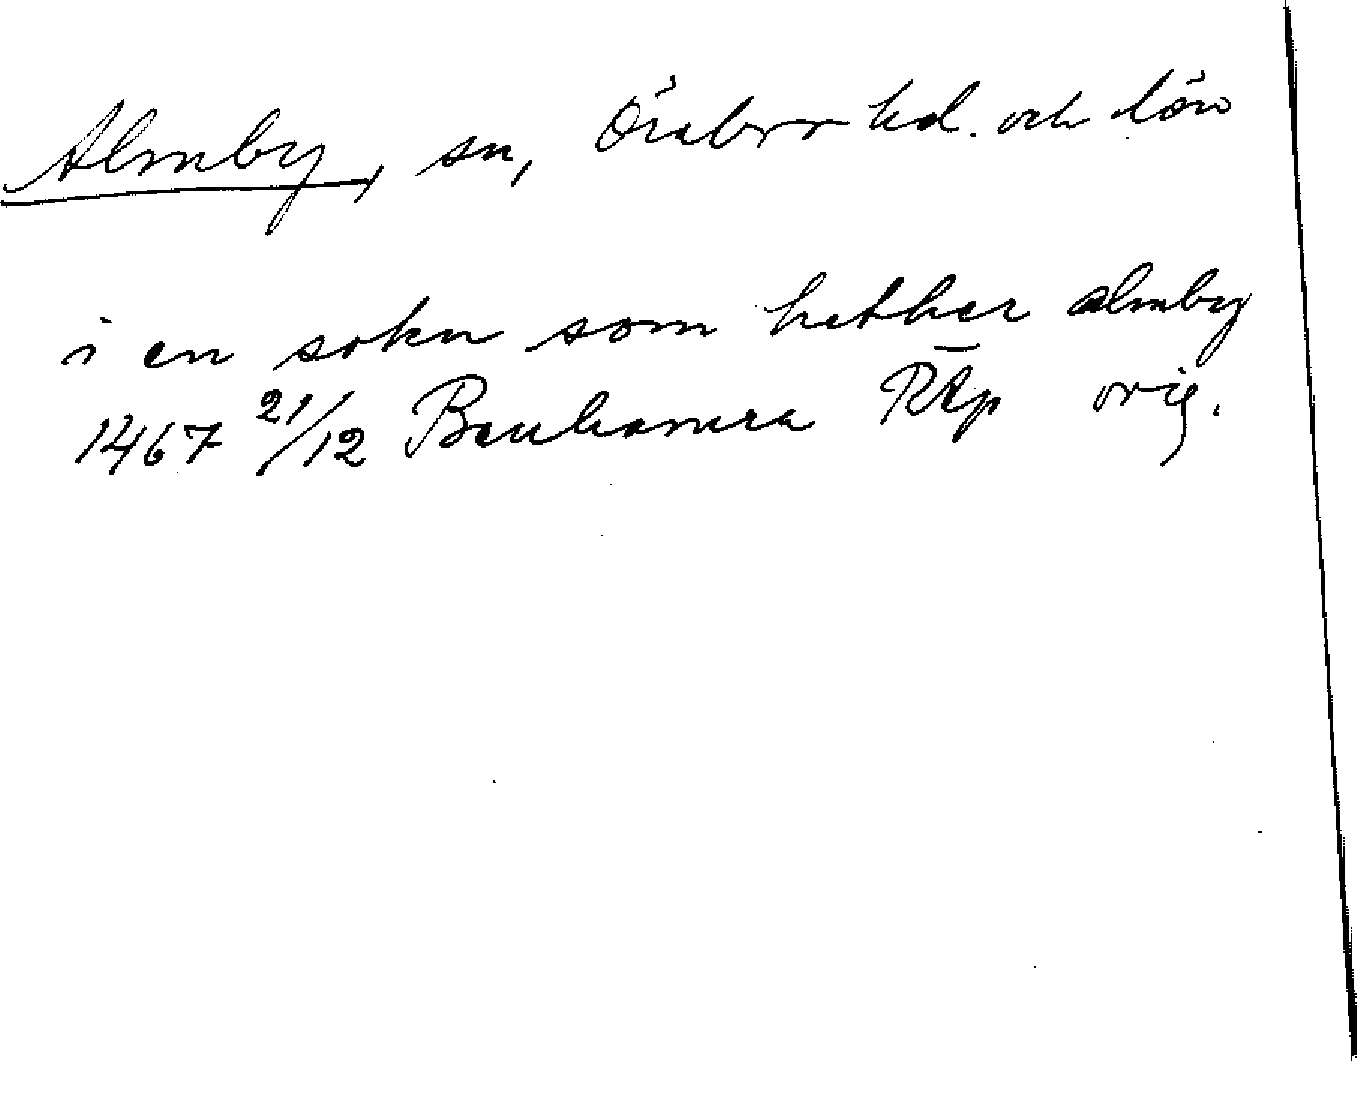 Almby, sn, Örebro hd. och län
i en sokn som hether almby
1467 21/12 Benhamra RAp orig.